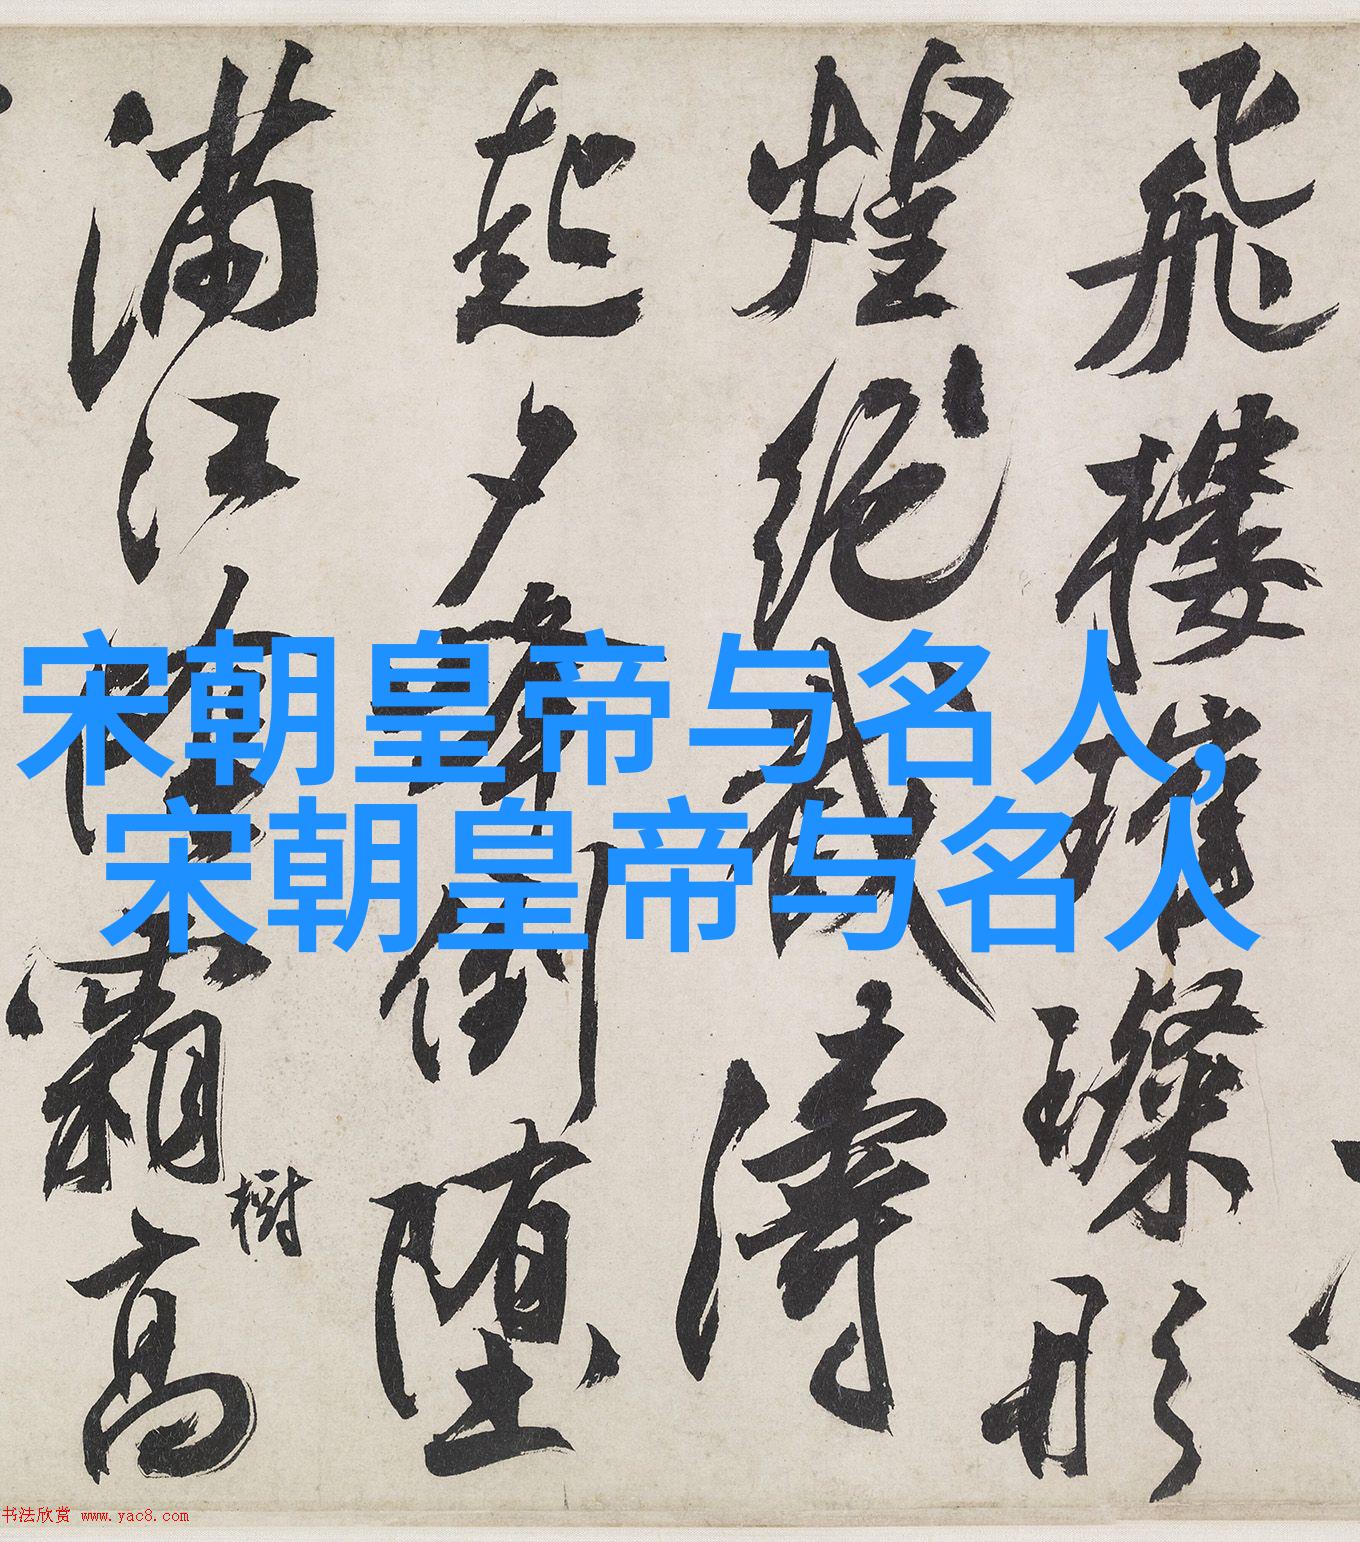 宋朝皇帝与名人,
宋朝皇帝与名人
飛樓璀璨彤
煌絕截濤
起夕倒堕
滿江霜高
樹
书法欣赏 www.yac8.com